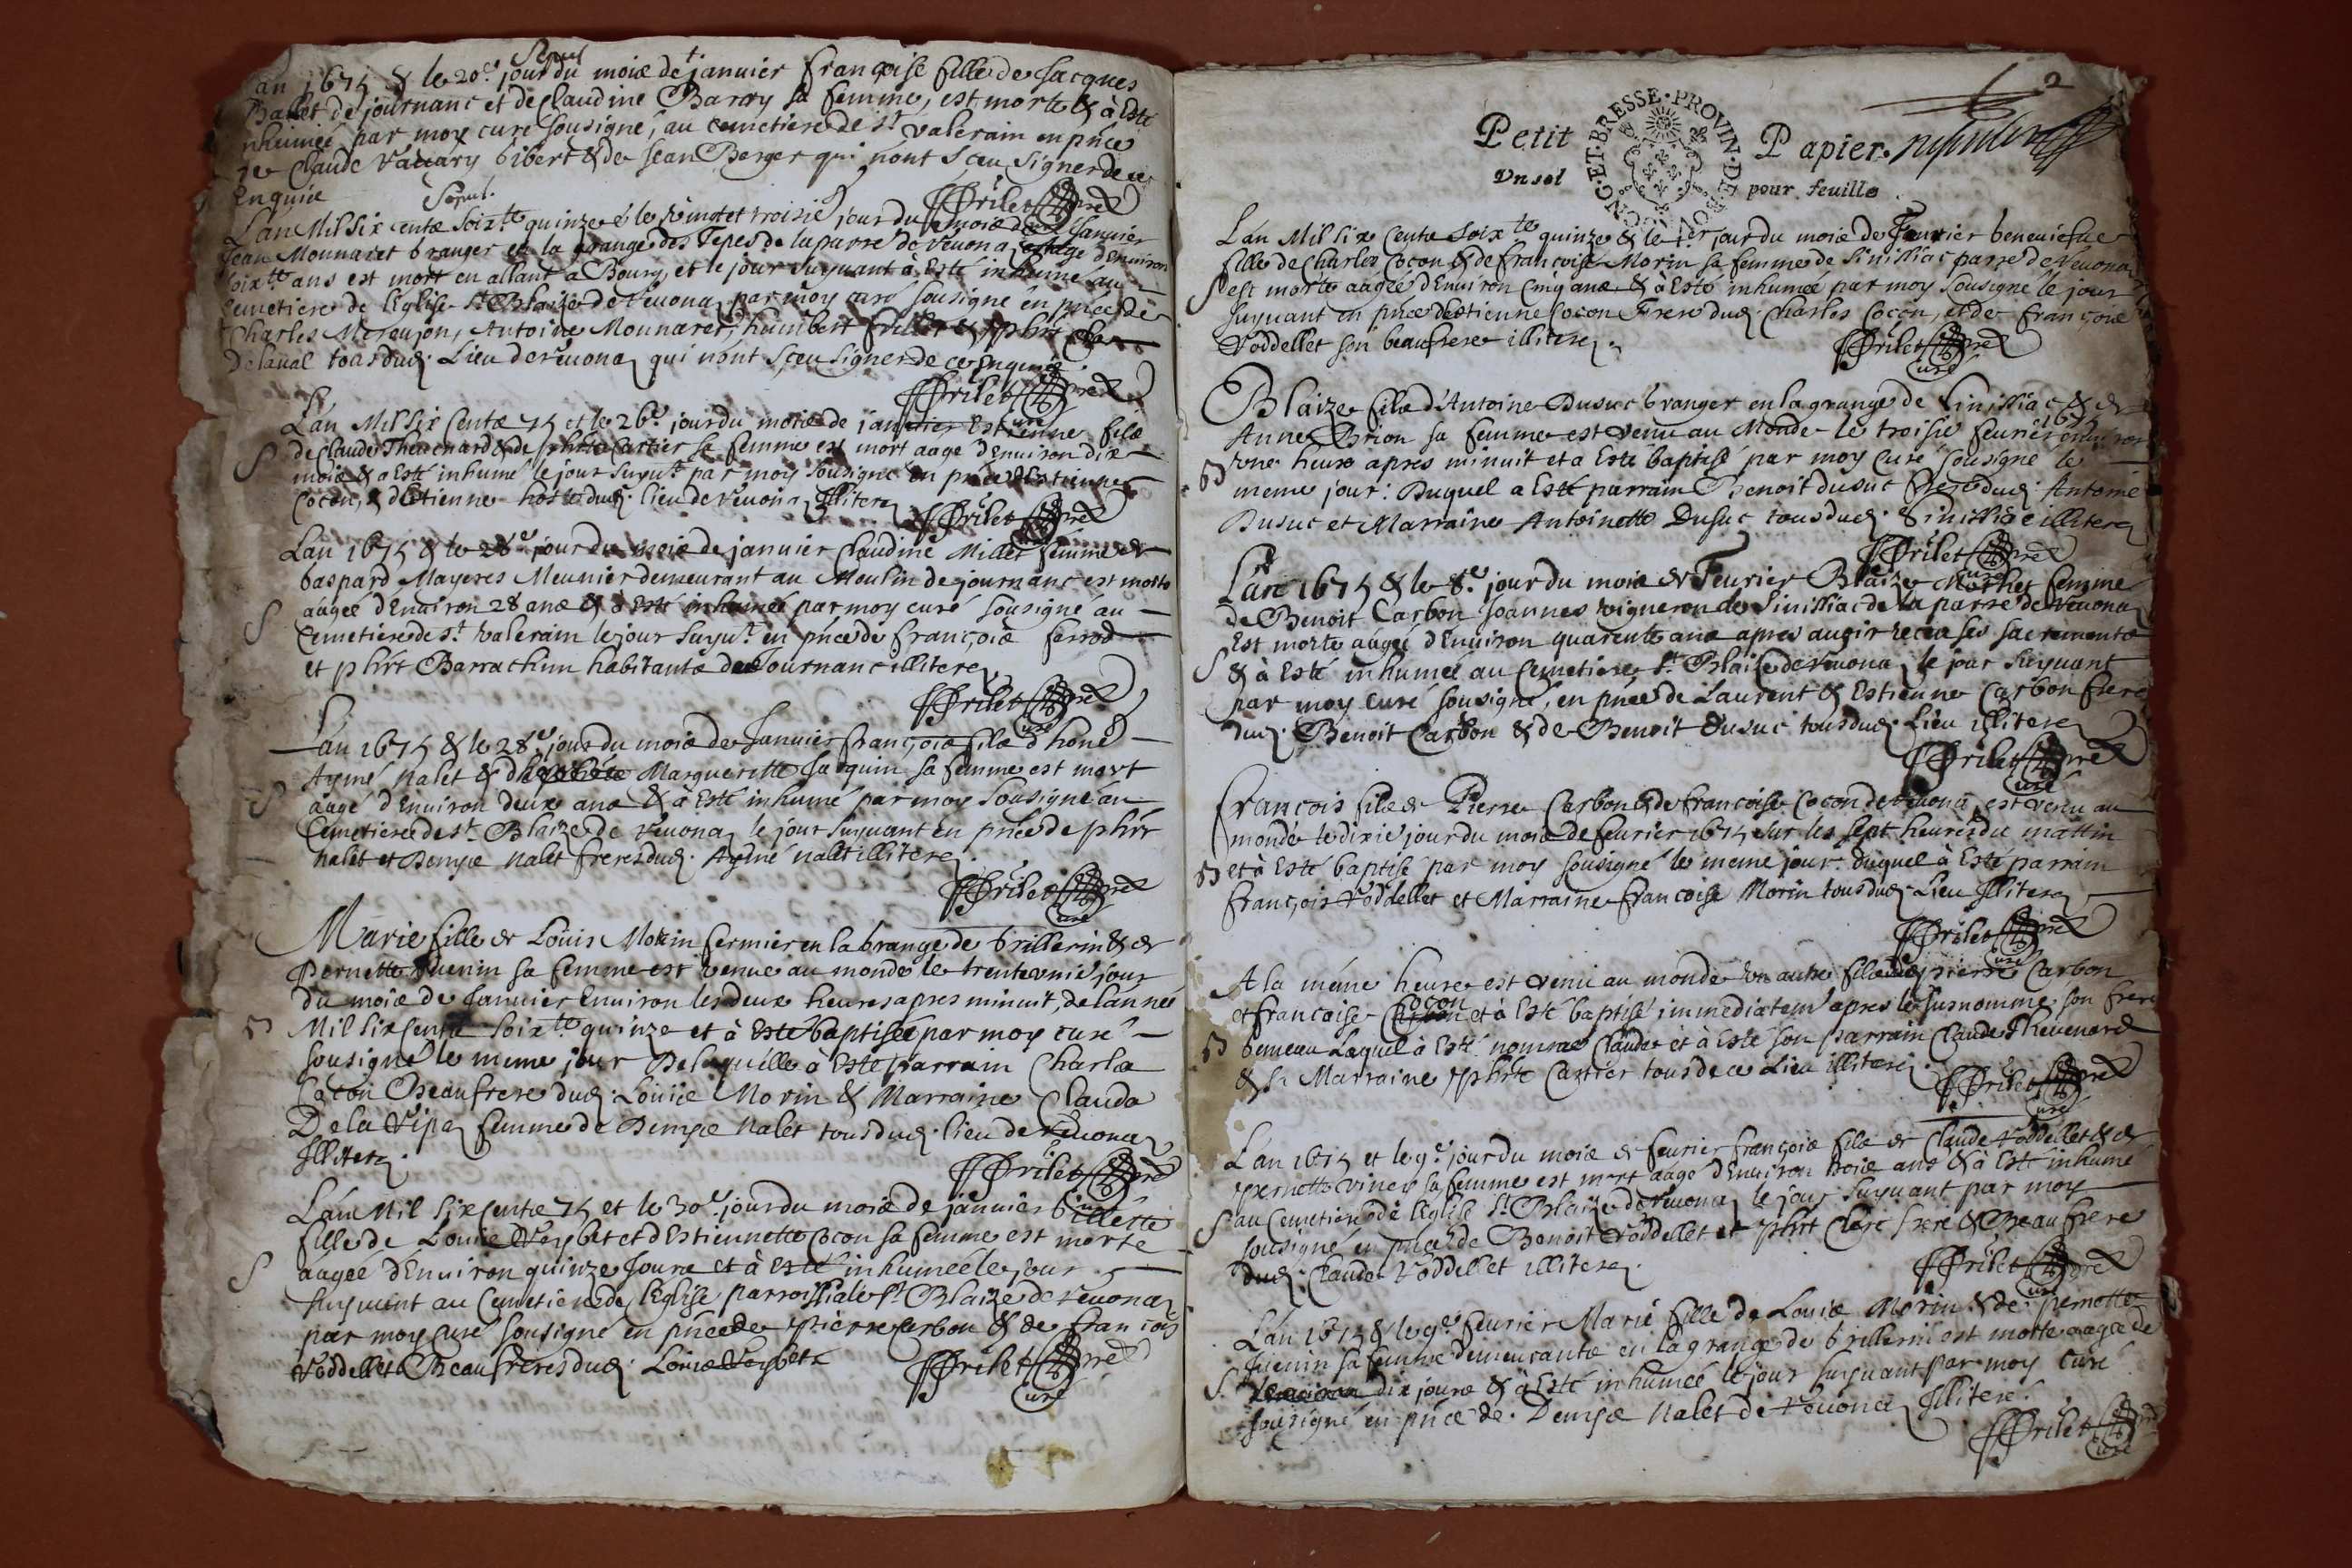 Sepul
an 1675 & le 20.e jour du mois de janvier françoise fille de Jacques
Ballet de journans et de Claudine Barry sa femme, est morte & à esté
nhumée par moy curé sousigné, au cemetiere de st valerain en pnce
de Claude Vaccary Gibert & de Jean Berger qui n'ont sceu signer de ce
Enquis
Frilet pre curé
Sepul.
L'an Mil six cents soixte quinze & le vingt et troisie jour du mois de Janvier
Jean Monnaret Granger en la grange des Tepes de la parre de Revona aagé d'Environ
soixte ans est mort en allant a Bourg, et le jour suyvant à Esté inhumé au
Cemetiere de l'Eglise st Blaize de Revonaz par moy curé sousigné en pnce de
Charles Antoine Monnaret, humbert
Delaval tous dud. Lieu de revonaz qui n'ont sceu signer de ce Enquis.
Frilet pre curé
L'an Mil six cents 75 et le 26e jour du mois de janvier Estienne fils
de Claude Thevenard & de phte Cartier sa femme est mort aagé d'Environ dix
S mois & a Esté inhumé le jour suyvt par moy sousigné en pnce d'Estienne
Cocon, & d'Estienne hoste dud. lieu de revonaz Illiterez
Frilet pre curé
Lan 1675 & le 28e jour du mois de janvier Claudine Millet femme de
Gaspard Mayeres Meunier demeurant au Moulin de journans est morte
S aagée d'Environ 28 ans & à Esté inhumée par moy curé sousigné au
Cemetiere de st Valerain le jour suyvt en pnce de François ferrod
et phrt Barrachim habitants de Journans illiterez
Frilet pre curé
L'an 1675 & le 28e jour du mois de Janvier françois fils d'honé
Aymé Nalet & d'h Marguerite Jacquin sa femme est mort
S aagé d'Environ deux ans & à Esté inhumé par moy sousigné au
Cemetiere de st Blaize de Revonaz le jour suyvant en pnce de phrt
Nalet et Denys Nalet freres dud. Aymé Nalet illiterez.
Frilet pre curé
Marie fille de Louis Morin fermier en la Grange de Grillerin & de
Pernette Juenin sa femme est venue au monde le trente unie jour
du mois de Janvier Environ les deux heures apres minuit, de l'année
B Mil six cents soixte quinze et à Esté baptisée par moy curé
sousigné le meme jour De laquelle à Esté parrain Charles
Cocon Beaufrere dud. Louis Morin & Marraine Clauda
De la Vipaz femme de Denys Nalet tous dud. lieu de revonaz
Illiterez.
Frilet pre
L'an Mil six cents 75 et le 30e jour du mois de janvier
fille de Louis Veybet et d'Estiennette Cocon sa femme est morte
S aagée d'Environ quinze Jours et à Esté inhumée le jour
suyvant au Cemetiere de l'Eglise parroissiale st Blaize de revonaz
par moy Curé sousigné en pnce de Pierre Carbon & de François
Voddellet Beaufreres dud. Louis Veybet
Frilet pre curé
2
Petit Papier.
Un sol pour feuille.
BOURG·ET·BRESSE·PROVIN·DE
L'an Mil six Cents soixte quinze & le 1er jour du mois de Fevrier
fille de Charles Cocon & de françoise Morin sa femme de Sinissiac parre de Revonaz
S est morte aagée d'Environ Cinq ans & à Esté inhumée par moy sousigné le jour
suyvant en pnce d'Estienne Cocon Frere dud. Charles Cocon, et de François
Voddellet son beaufrere illiterez.
Frilet pre curé
Blaize fils d'Antoine Dusuc Granger en la grange de Sinissiac & de
1675
Anne Brion sa femme est venu au Monde le troisie fevrier environ
B une heure apres minuit et a Esté baptisé par moy Curé sousigné le
meme jour: Duquel a Esté parrain Benoit dusuc frere dud. Antoine
Dusuc et Marraine Antoinette Dusuc tous dud. Sinissiac illiterez
Frilet pre curé
L'an 1675 & le 8e jour du mois de Fevrier Blaize femme
de Benoit Carbon Joannes vigneron de Sinissiac de la parre de Revonaz
Est morte aagée d'Environ quarente ans apres avoir receu ses sacrements
S & à Esté inhumée au Cemetiere st Blaize de Revonaz le jour suyvant
par moy curé sousigné, en pnce de Laurent & Estienne Carbon frere
dud. Benoit Carbon & de Benoit Dusuc tous dud. Lieu illiterez
Frilet pre curé
François fils de Pierre Carbon & de françoise Cocon de revona est venu au
monde le dixie jour du mois de fevrier 1675 sur les sept heures du mattin
B et à Esté baptisé par moy sousigné le meme jour duquel à Esté parrain
François Voddellet et Marraine françoise Morin tous dud. Lieu Illiterez
Frilet pre curé
A la méme heure est venu au monde un autre fils dud. pierre Carbon
Cocon
et françoise et à Esté baptisé immediatemt apres le susnommé son frere
B Gemeau Laquel à Esté nommé Claude et à Esté son parrain Claude Thevenard
& sa Marraine phte Cartier tous de ce Lieu illiterez.
Frilet pre curé
L'an 1675 et le 9e jour du mois de fevrier françois fils de Claude Voddellet & de
pernette sa femme est mort aagé d'Environ trois ans & à Esté inhumé
S au Cemetiere de l'Eglise st Blaize de Revonaz le jour suyvant par moy
sousigné en pnce de Benoit Voddellet et phrt Clerc frere & Beaufrere
dud. Claude Voddellet illiterez.
Frilet pre curé
L'an 1675 & le 9e fevrier Marie fille de Louis Morin & de pernette
Juenin sa femme demeurants en la grange de Grillerin est morte aagée de
S. dix jours & à Esté inhumée le jour suyvant par moy curé
sousigné en pnce de Denys Nalet de Revonaz Illiteré.
Frilet pre curé